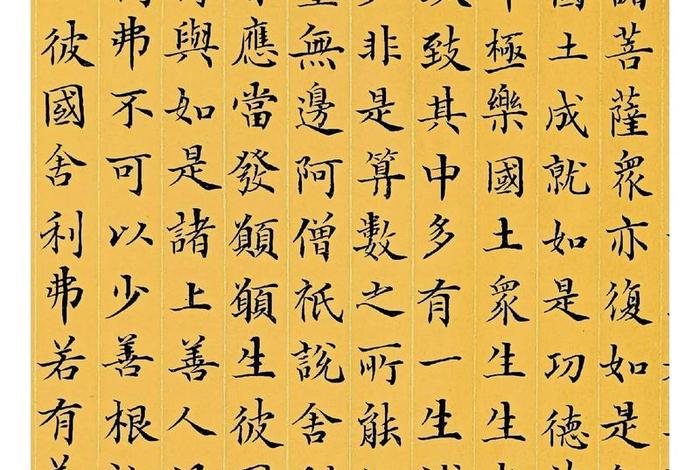 菩薩衆亦復如是
土成就如是功德
極樂國土衆生生
致其中多有一生
非是算數之所能
無邊阿僧祇說舍
應當發願願生彼
與如是諸上善人
弗不可以少善根
彼國舍利弗若有